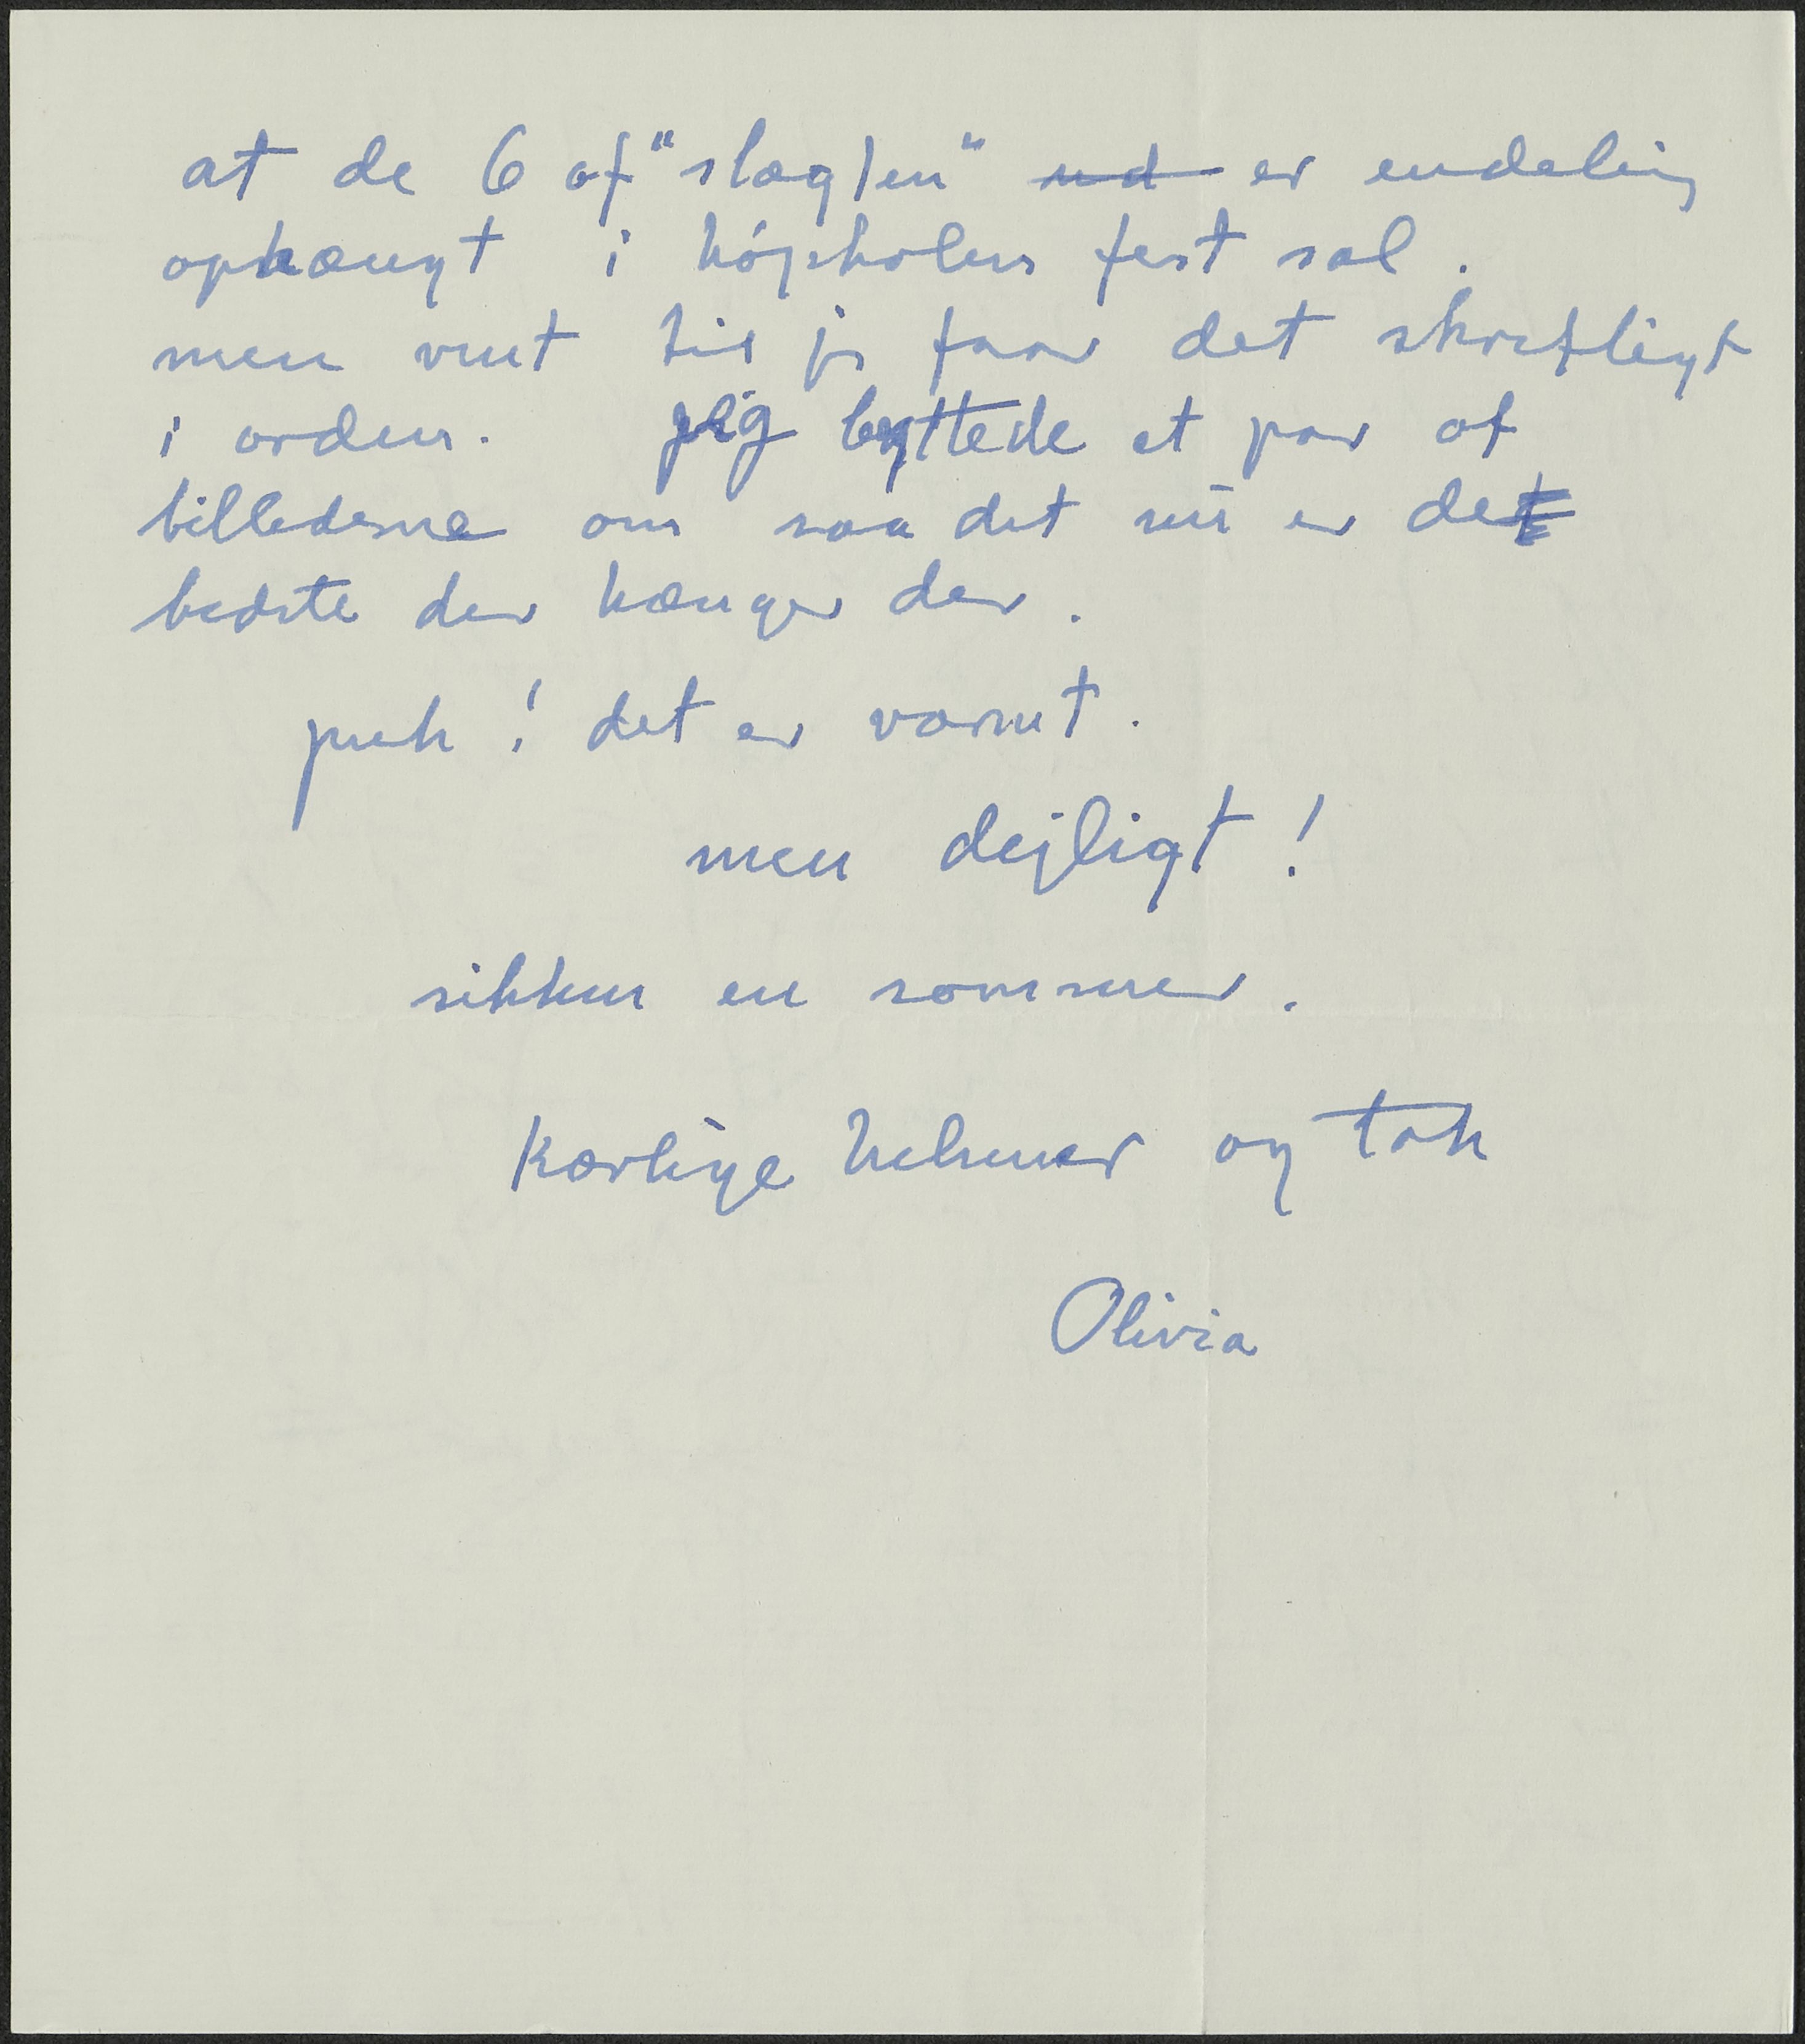 at de 6 af "slægten" ud er endelig
ophængt i højskolens fest sal.
men vent til jeg faar det skriftligt
i orden. jeg byttede et par af
billederne om saa det nu er det
bedste der hænger der.
puh! det er varmt.
men dejligt!
sikken en sommer.
Kærlige hilsener og tak
Olivia